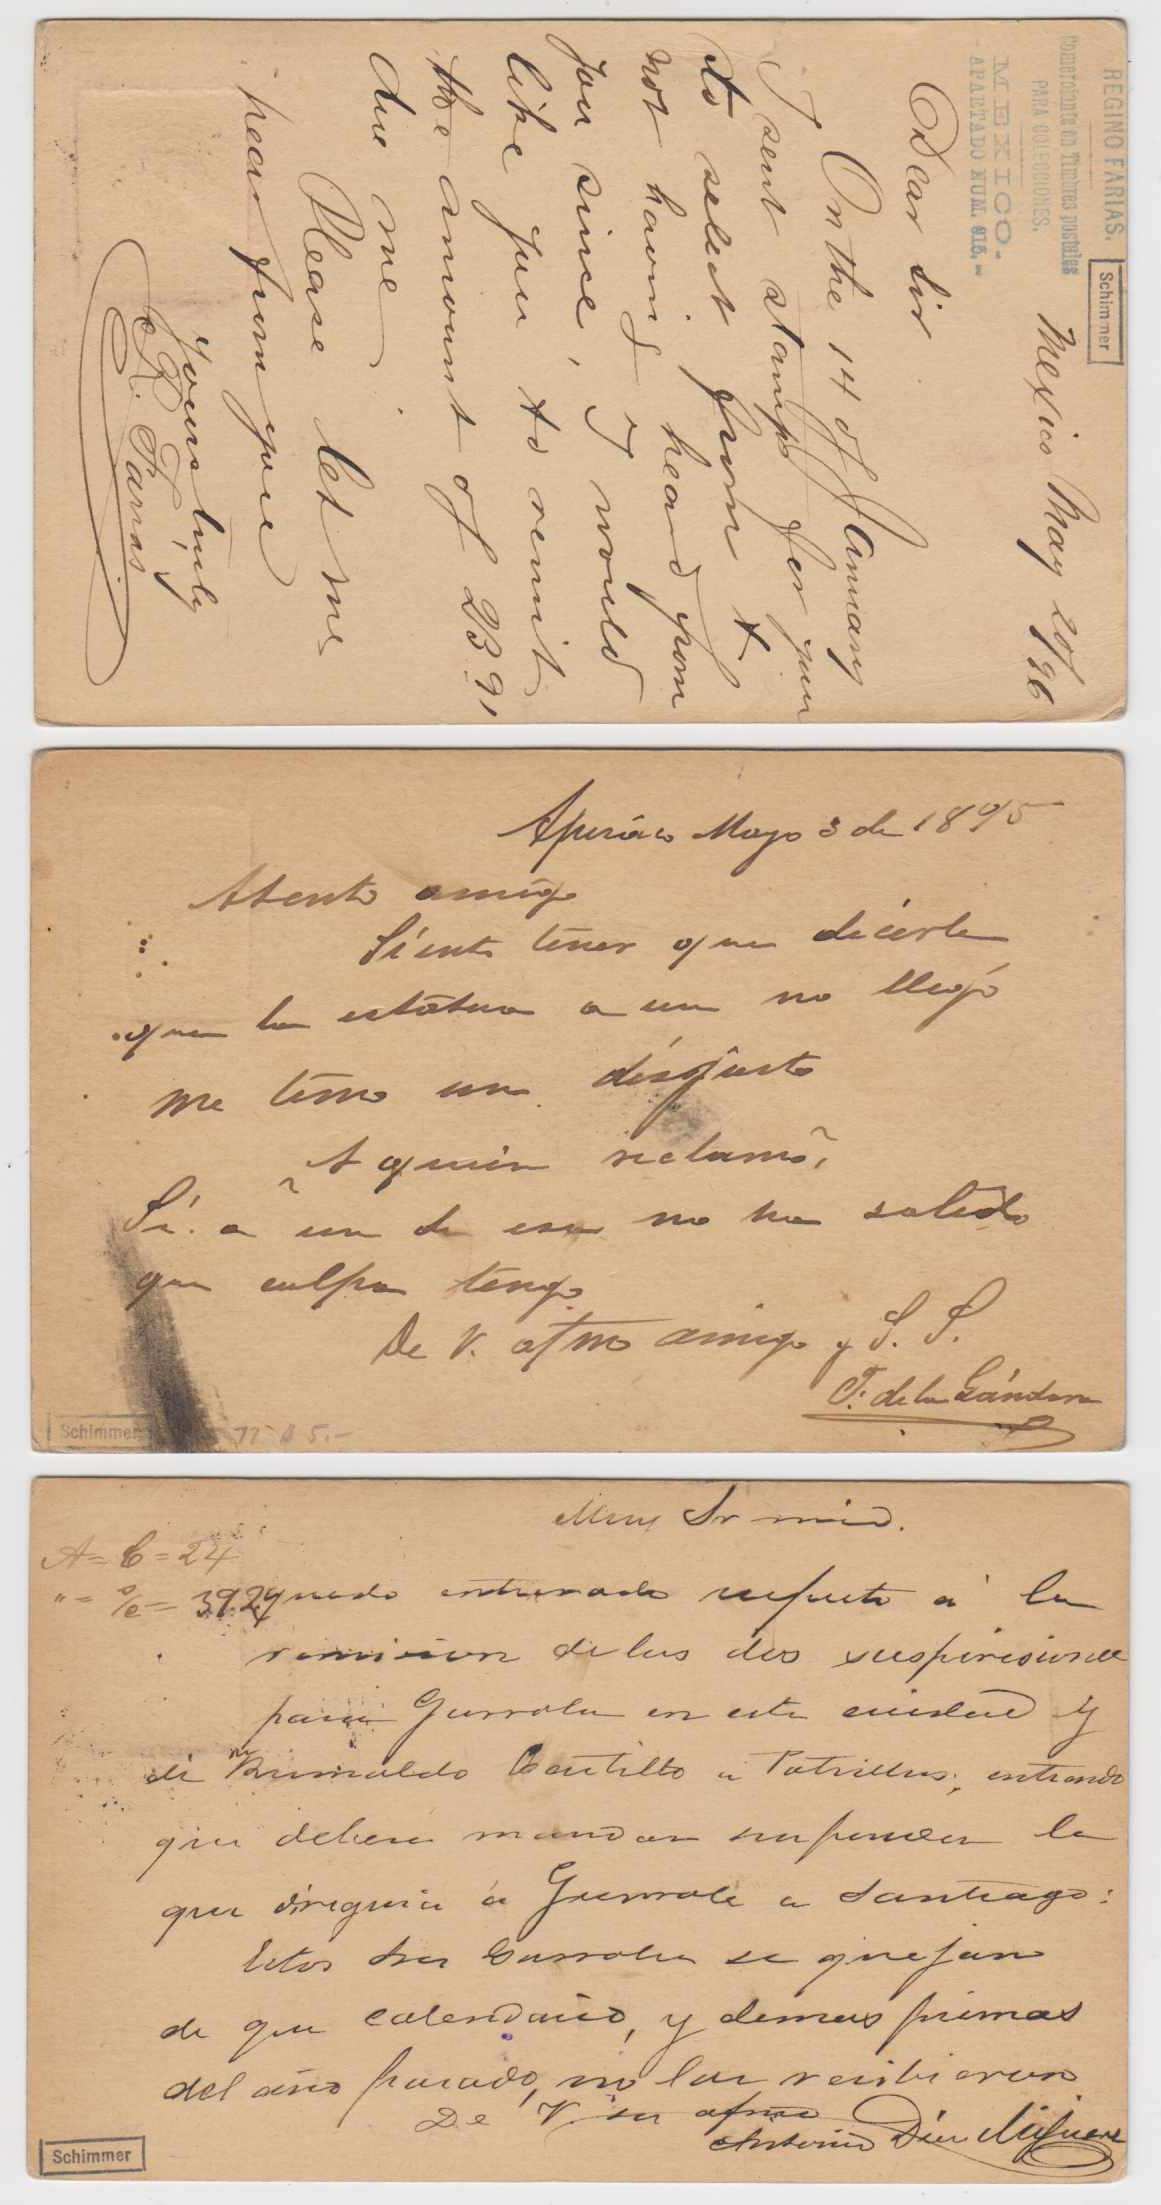 REGINO FARIAS.
Comerciante en Timbres postales
PARA COLECCIONES.
MEXICO.
APARTADO NUM. 915.
Schimmer
Mexico May 20/96
Dear Sir
On the 14 of January
I sent stamps for you
to select from &
not having heard from
you since, I would
like you to remit
the amount of 23.91
due me.
Please let me
hear from you
Yours truly
R. Farias
Mayo 3 de 1895
Atento amigo
Siento tener que decirle
que la estatua a un no llegó
me temo un disgusto
A quien reclamo,
Si a un de esa no ha salido
que culpa tengo
De V. afmo amigo y S. S.
F. de la Gándara
Schimmer
77 5.-
Muy Sr mio.
A = C = 24
" = = 3924
quedo enterado respecto á la
remision de las dos
para Gurrola en esta ciudad y
de Rumaldo Castillo a Potrillos; entiendo
que deberá mandar suspender la
que dirigia á Gurrola a Santiago:
Estos Sres Gurrola se quejan
de que calendario, y demas primas
del año pasado, no las recibieron
De V. su afmo
Antonio Diaz
Schimmer